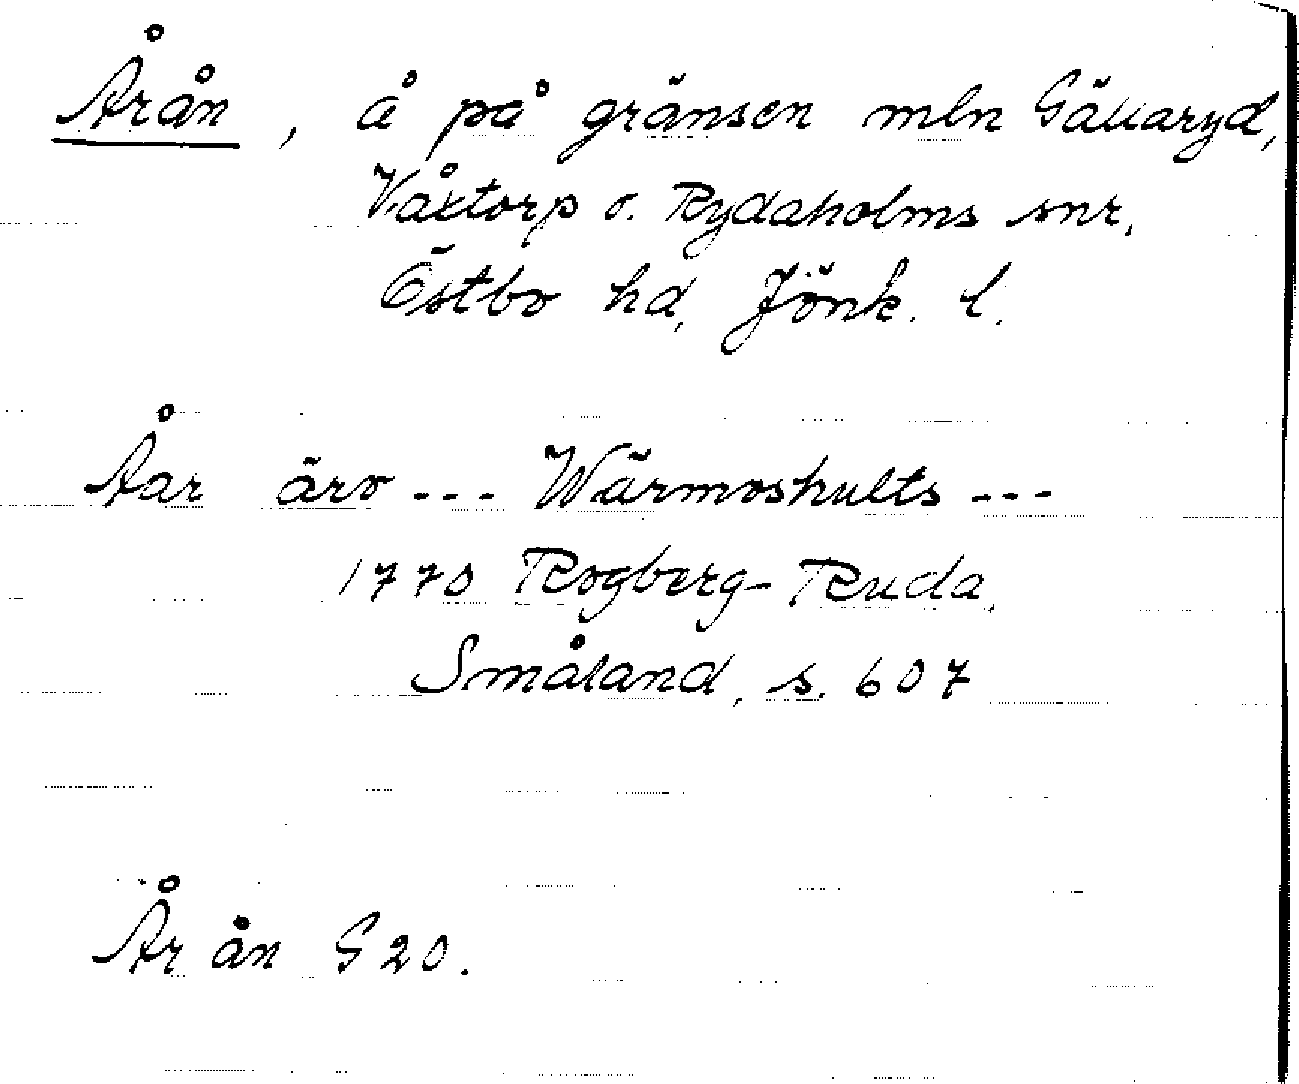 Årån, å på gränsen mln Gällaryd,
Våxtorp o. Rydaholms snr,
Östbo hd, Jönk. l.
Åar äro --- Wärmoshults ---
1770 Rogberg-Ruda,
Småland, s. 607
År ån G 20.